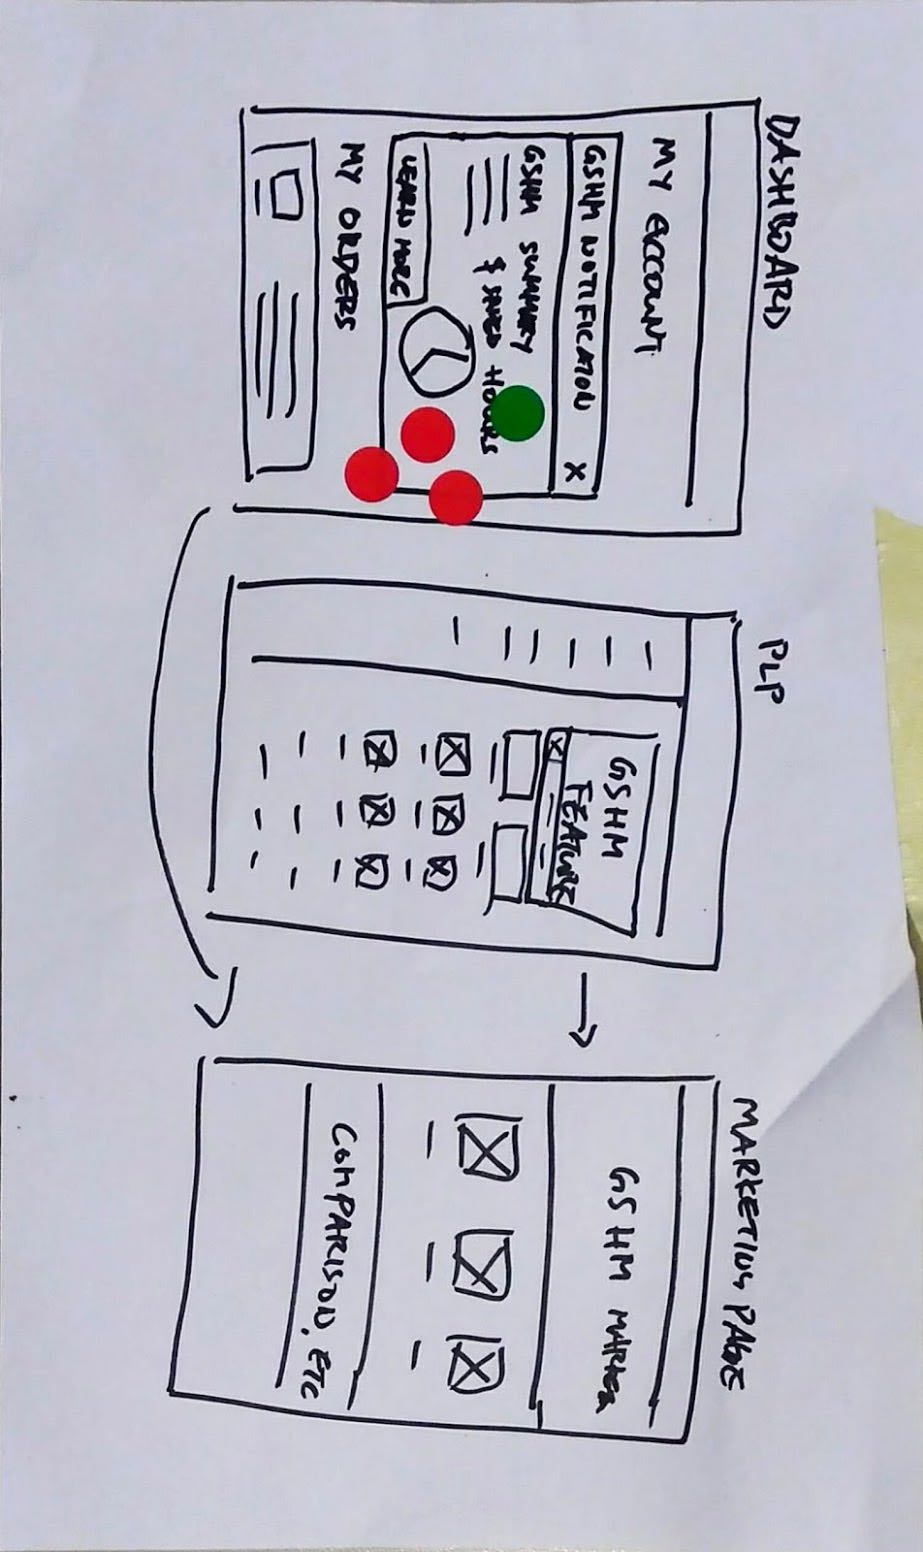 DASHBOARD
MY ACCOUNT
GSHM NOTIFICATION X
GSHM SUMMARY
$ SAVED HOURS
LEARN MORE
MY ORDERS
PLP
GSHM
FEATURE
MARKETING PAGE
GSHM
COMPARISON, ETC